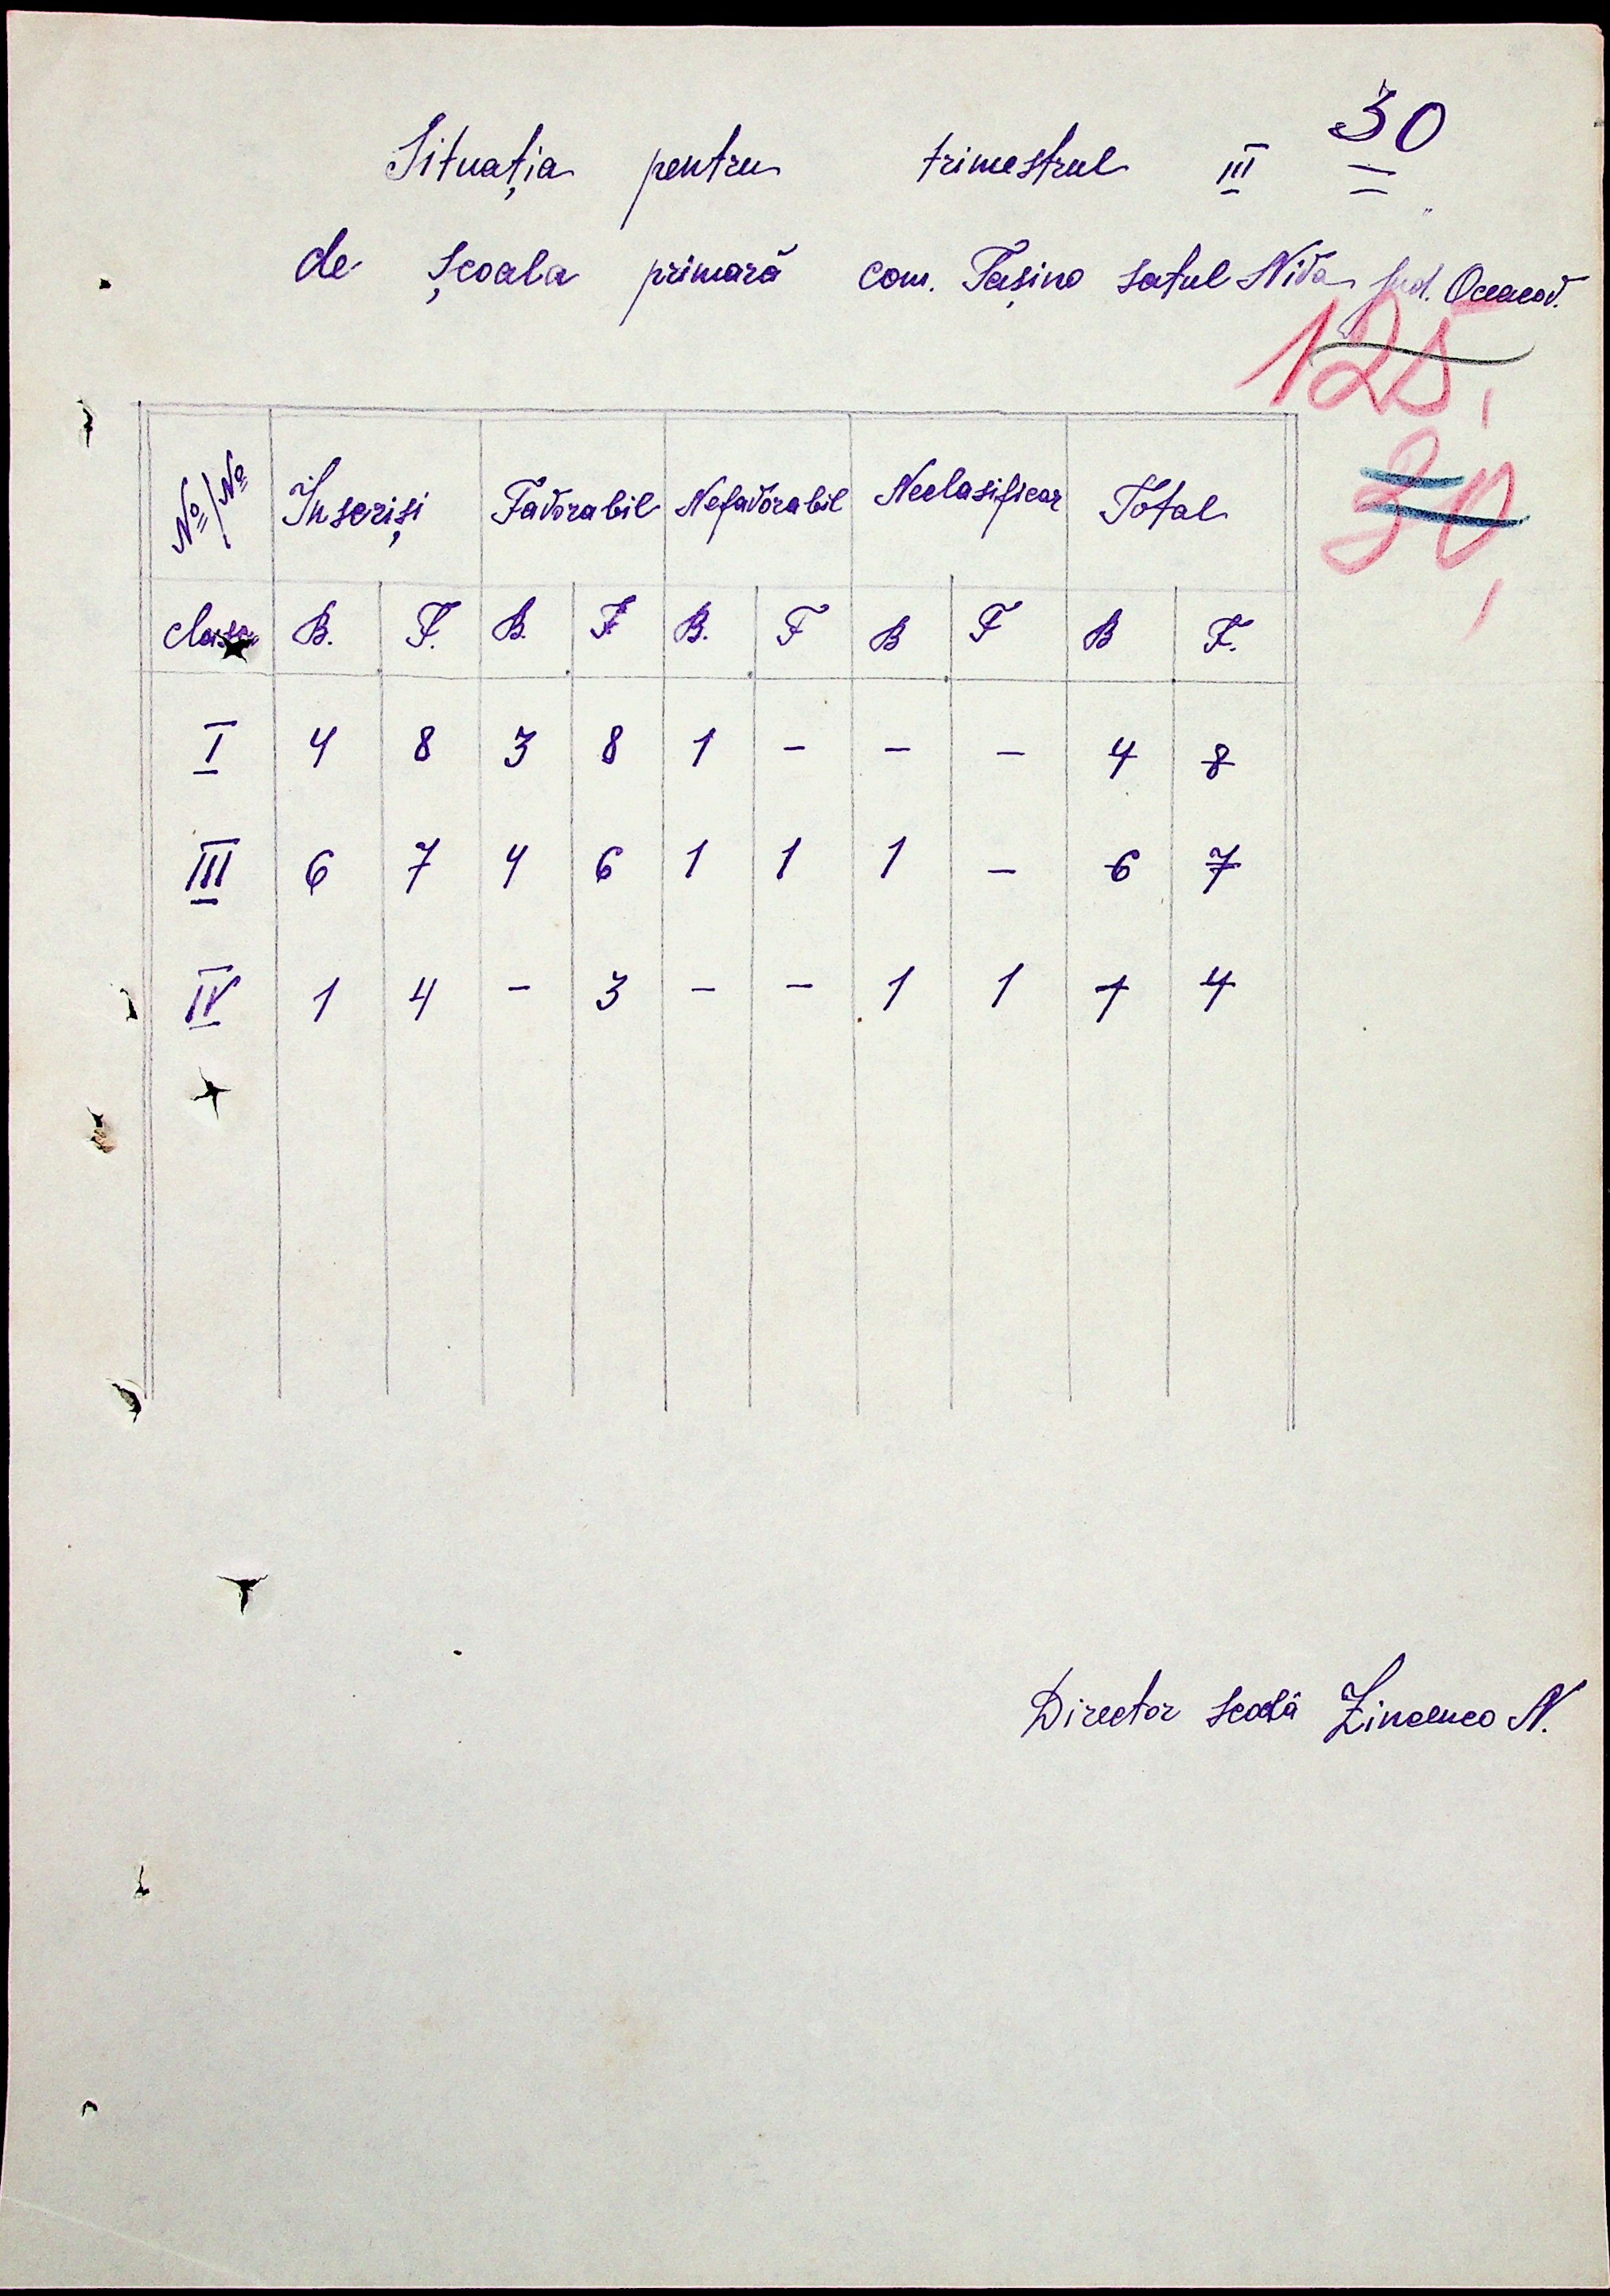 30
Situația pentru trimestrul III
de școala primară com. Tașino satul Niva Jud. Oceacov.
125,
30,
No/No Înscriși Favorabil Nefavorabil Neclasificar Total
clasa B. F. B. F. B. F B F B F.
I 4 8 3 8 1 - - - 4 8
III 6 7 4 6 1 1 1 - 6 7
IV 1 4 - 3 - - 1 1 1 4
Director scoală N.